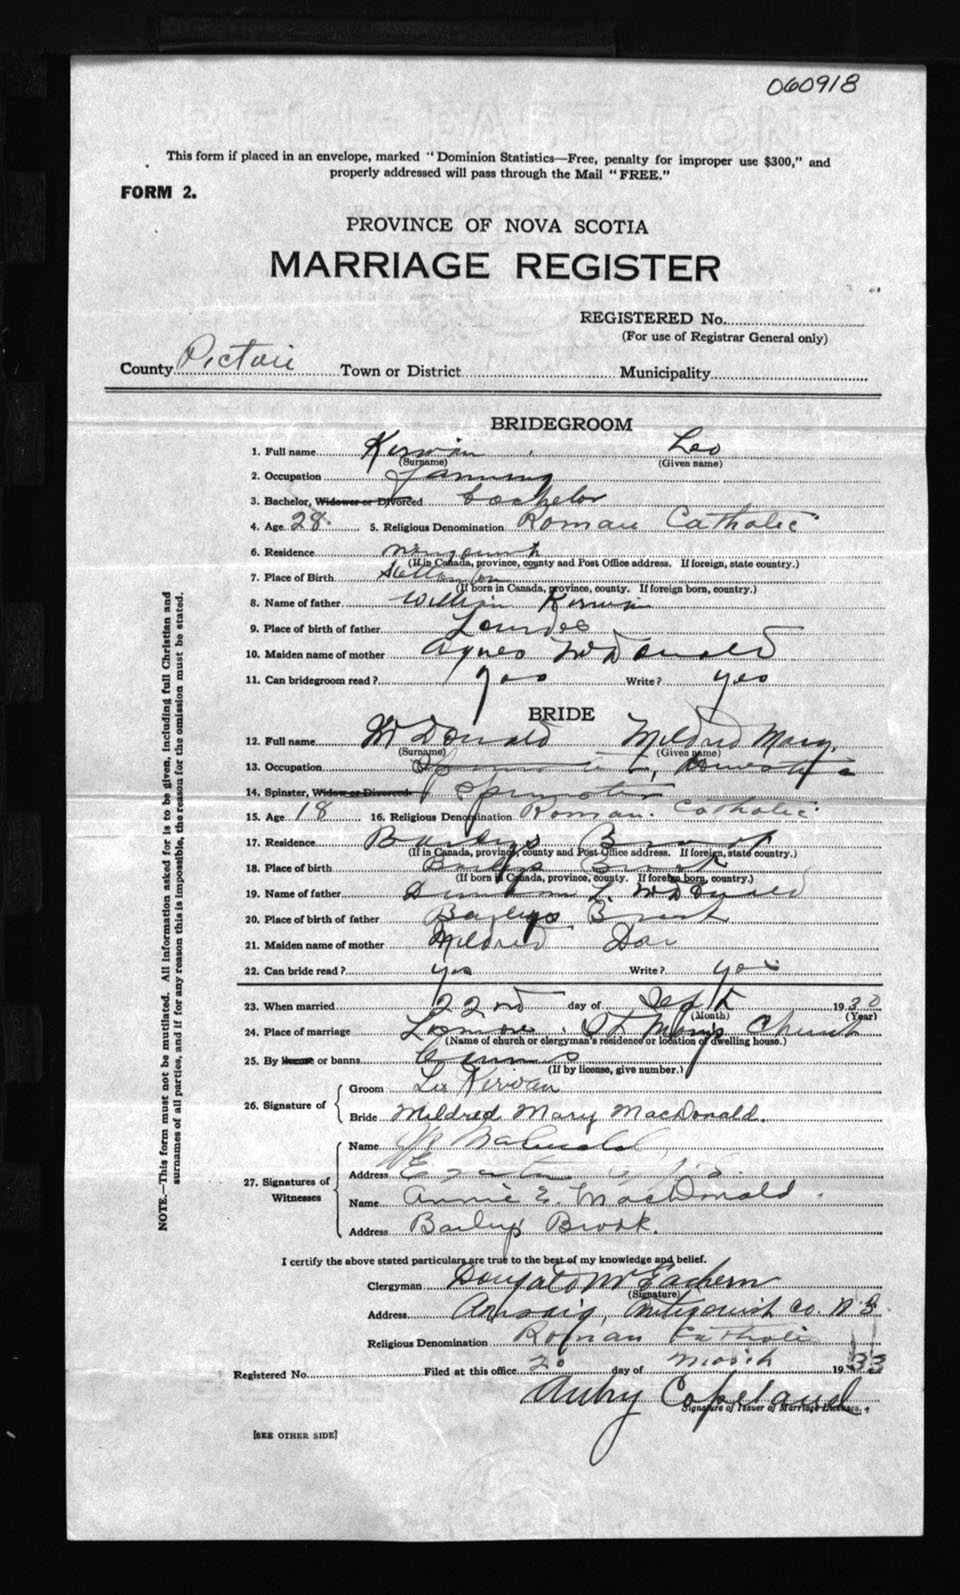 060918
This form if placed in an envelope, marked "Dominion Statistics—Free, penalty for improper use $300," and
properly addressed will pass through the Mail "FREE."
FORM 2.
PROVINCE OF NOVA SCOTIA
MARRIAGE REGISTER
REGISTERED No.
(For use of Registrar General only)
County Pictou Town or District Municipality
BRIDEGROOM
1. Full name Kerwin Leo
(Surname) (Given name)
2. Occupation Farming
3. Bachelor, Widower or Divorced bachelor
4. Age 28 5. Religious Denomination Roman Catholic
6. Residence
(If in Canada, province, county and Post Office address. If foreign, state country.)
7. Place of Birth Stellarton
(If born in Canada, province, county. If foreign born, country.)
8. Name of father William Kerwin
9. Place of birth of father Lourdes
10. Maiden name of mother Agnes McDonald
11. Can bridegroom read? yes Write? yes
BRIDE
12. Full name McDonald Mildred Mary
(Surname) (Given name)
13. Occupation Domestic
14. Spinster, Widow or Divorced Spinster
15. Age 18 16. Religious Denomination Roman Catholic
17. Residence Baileys Brook
(If in Canada, province, county and Post Office address. If foreign, state country.)
18. Place of birth Baileys Brook
(If born in Canada, province, county. If foreign born, country.)
19. Name of father L. McDonald
20. Place of birth of father Baileys Brook
21. Maiden name of mother Mildred
22. Can bride read? yes Write? yes
23. When married 22nd day of Sept 1930
(Month) (Year)
24. Place of marriage Lismore St Mary's Church
(Name of church or clergyman's residence or location of dwelling house.)
25. By license or banns Banns
(If by license, give number.)
26. Signature of Groom Leo Kirwan
Bride Mildred Mary MacDonald.
27. Signatures of Witnesses Name
Address
Name Annie E. MacDonald.
Address Bailey's Brook.
I certify the above stated particulars are true to the best of my knowledge and belief.
Clergyman Dougald McEachern
(Signature)
Address Arisaig, Antigonish Co. N.S.
Religious Denomination Roman Catholic
Registered No. Filed at this office 20 day of March 1933
Aubry Copeland
Signature of Issuer of Marriage Licenses.
[SEE OTHER SIDE]
NOTE.—This form must not be mutilated. All information asked for is to be given, including full Christian and
surnames of all parties, and if for any reason this is impossible, the reason for the omission must be stated.